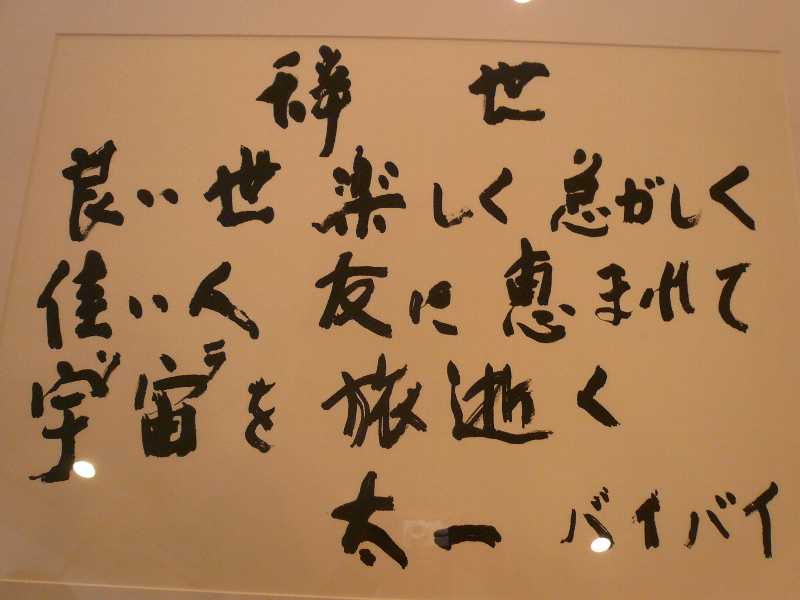 辞世
良い世 楽しく 忩がしく
佳い人 友に恵まれて
ソ ラ
宇宙を 旅逝く
太一 バイバイ